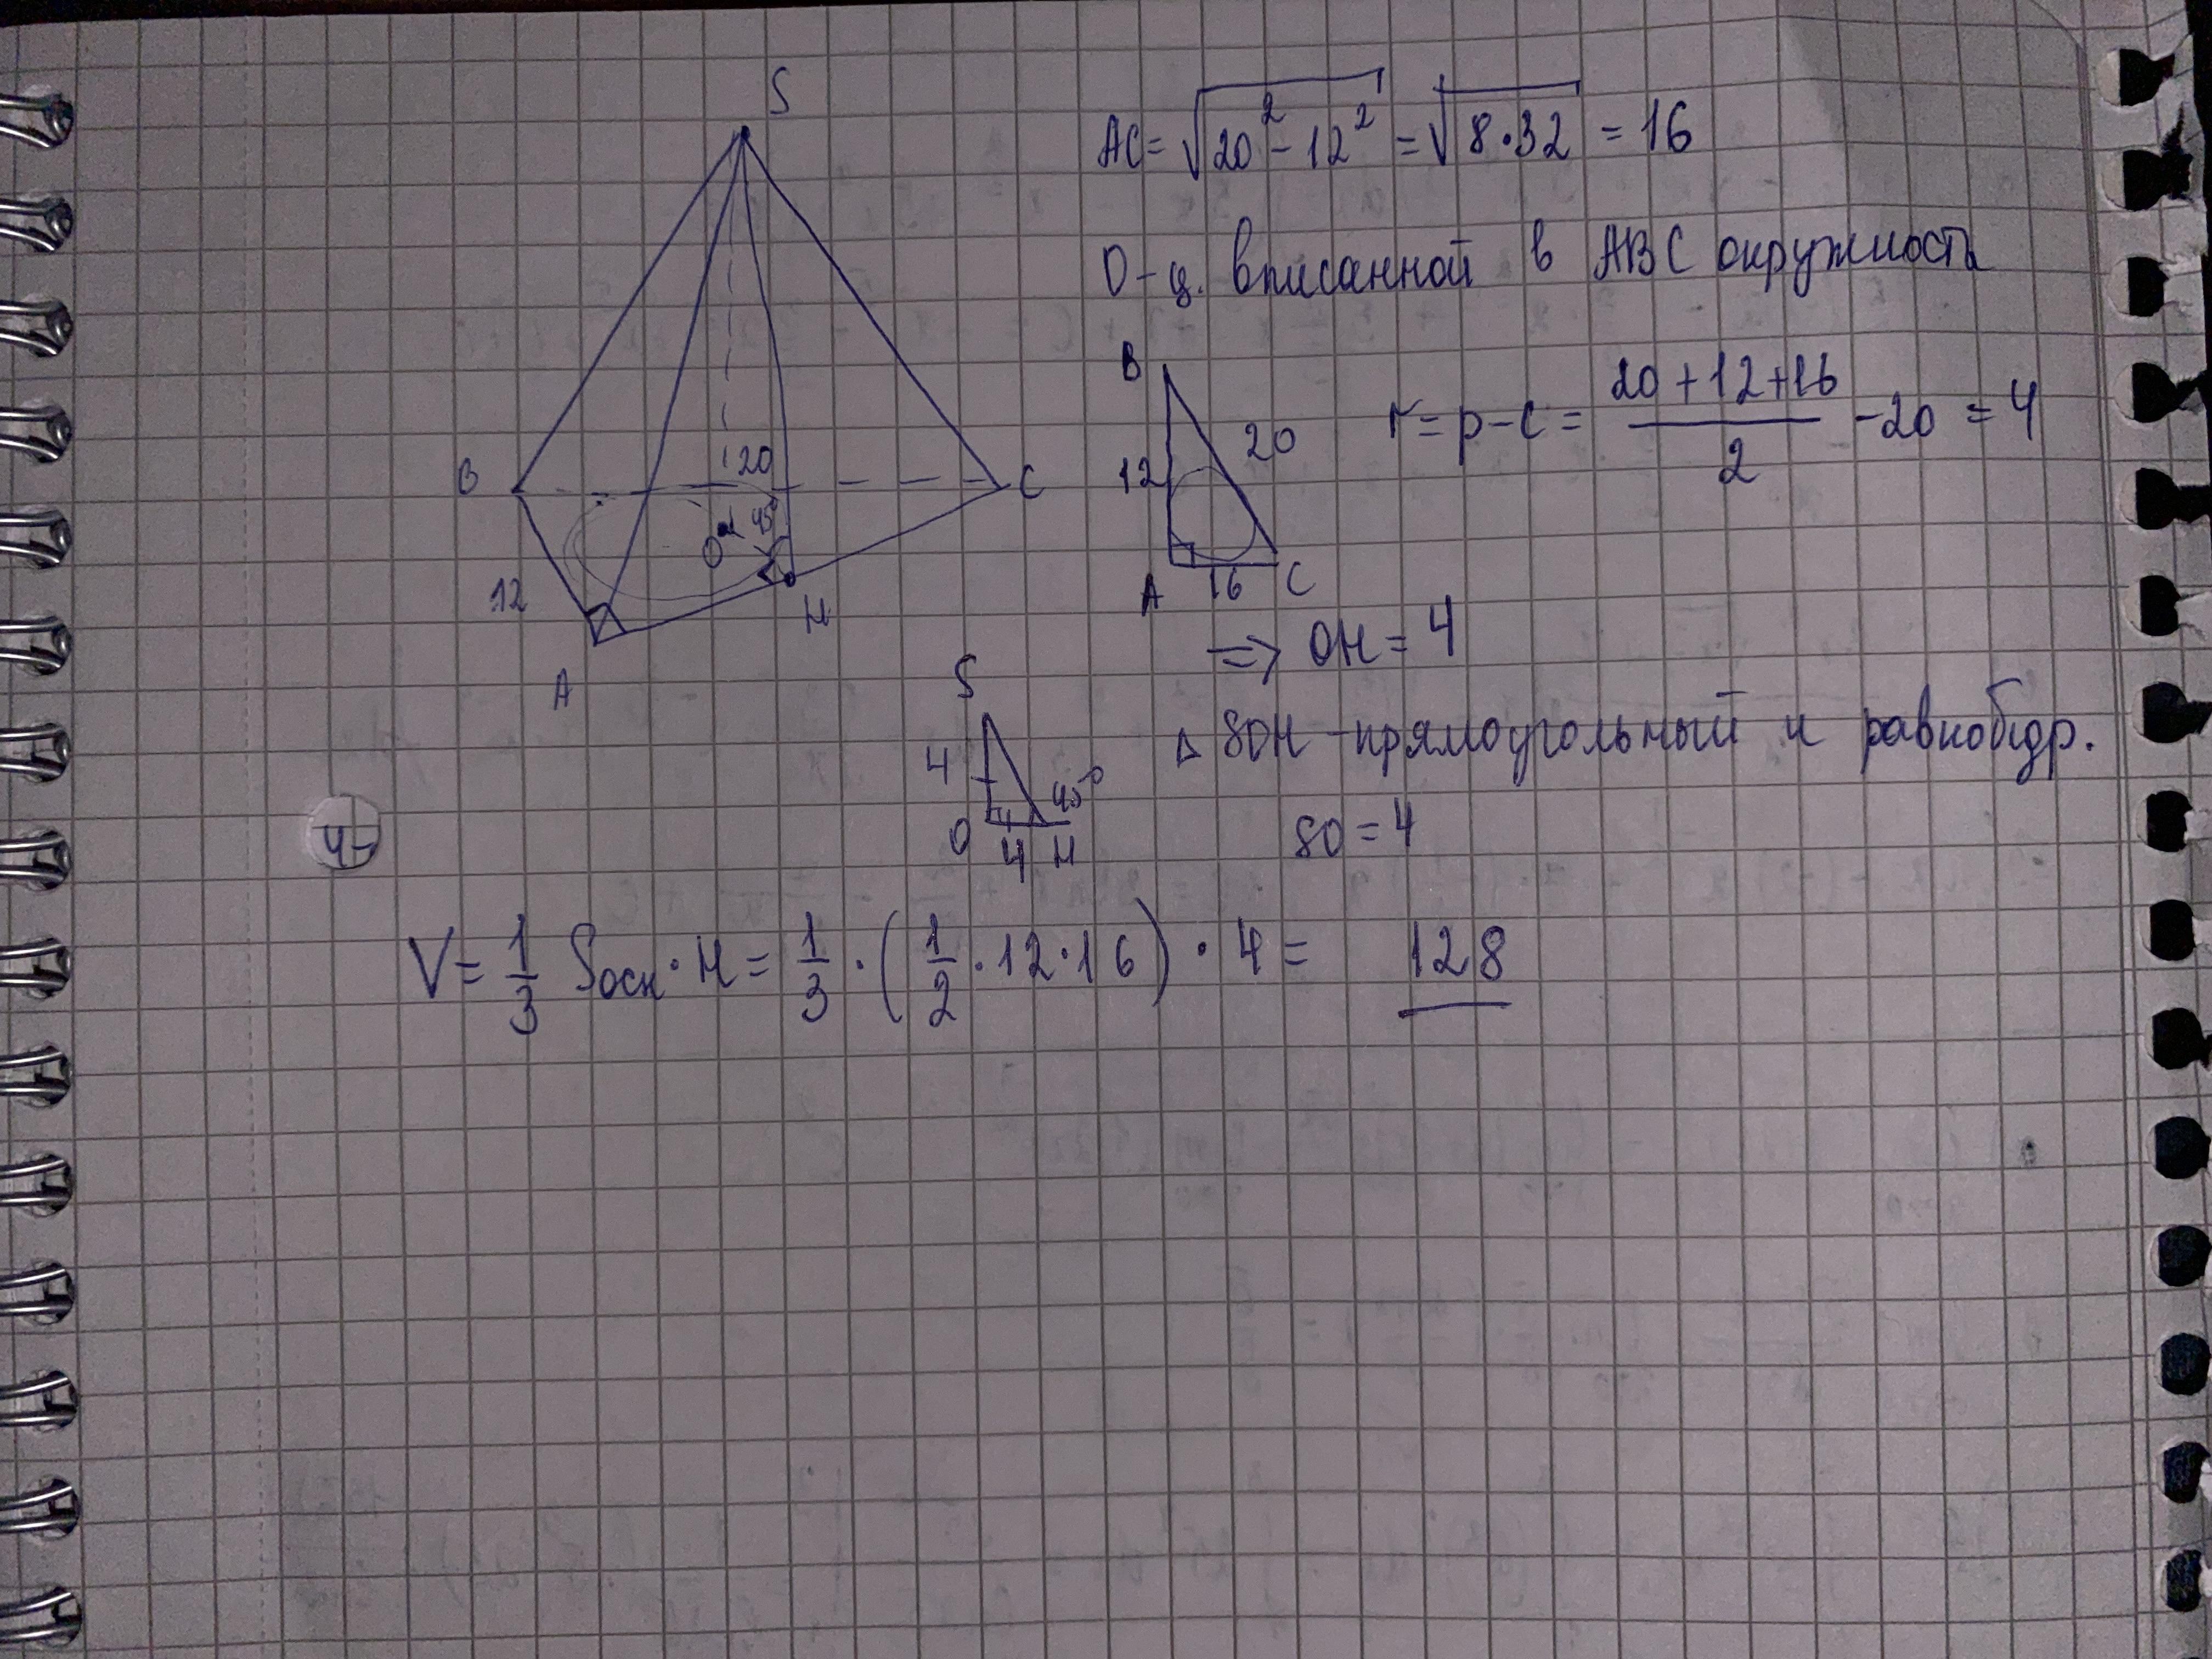 S
AC = √20² - 12² = √8·32 = 16
O - ц. вписанной в ABC окружность
B
12
20
A
16
C
r = p - c = (20 + 12 + 16)/2 - 20 = 4
B
20
C
O
45°
12
H
A
=> OH = 4
S
4
45°
O
4
H
Δ SOH - прямоугольный и равнобедр.
SO = 4
4-
V = 1/3 Sосн · H = 1/3 · (1/2 · 12 · 16) · 4 = 128